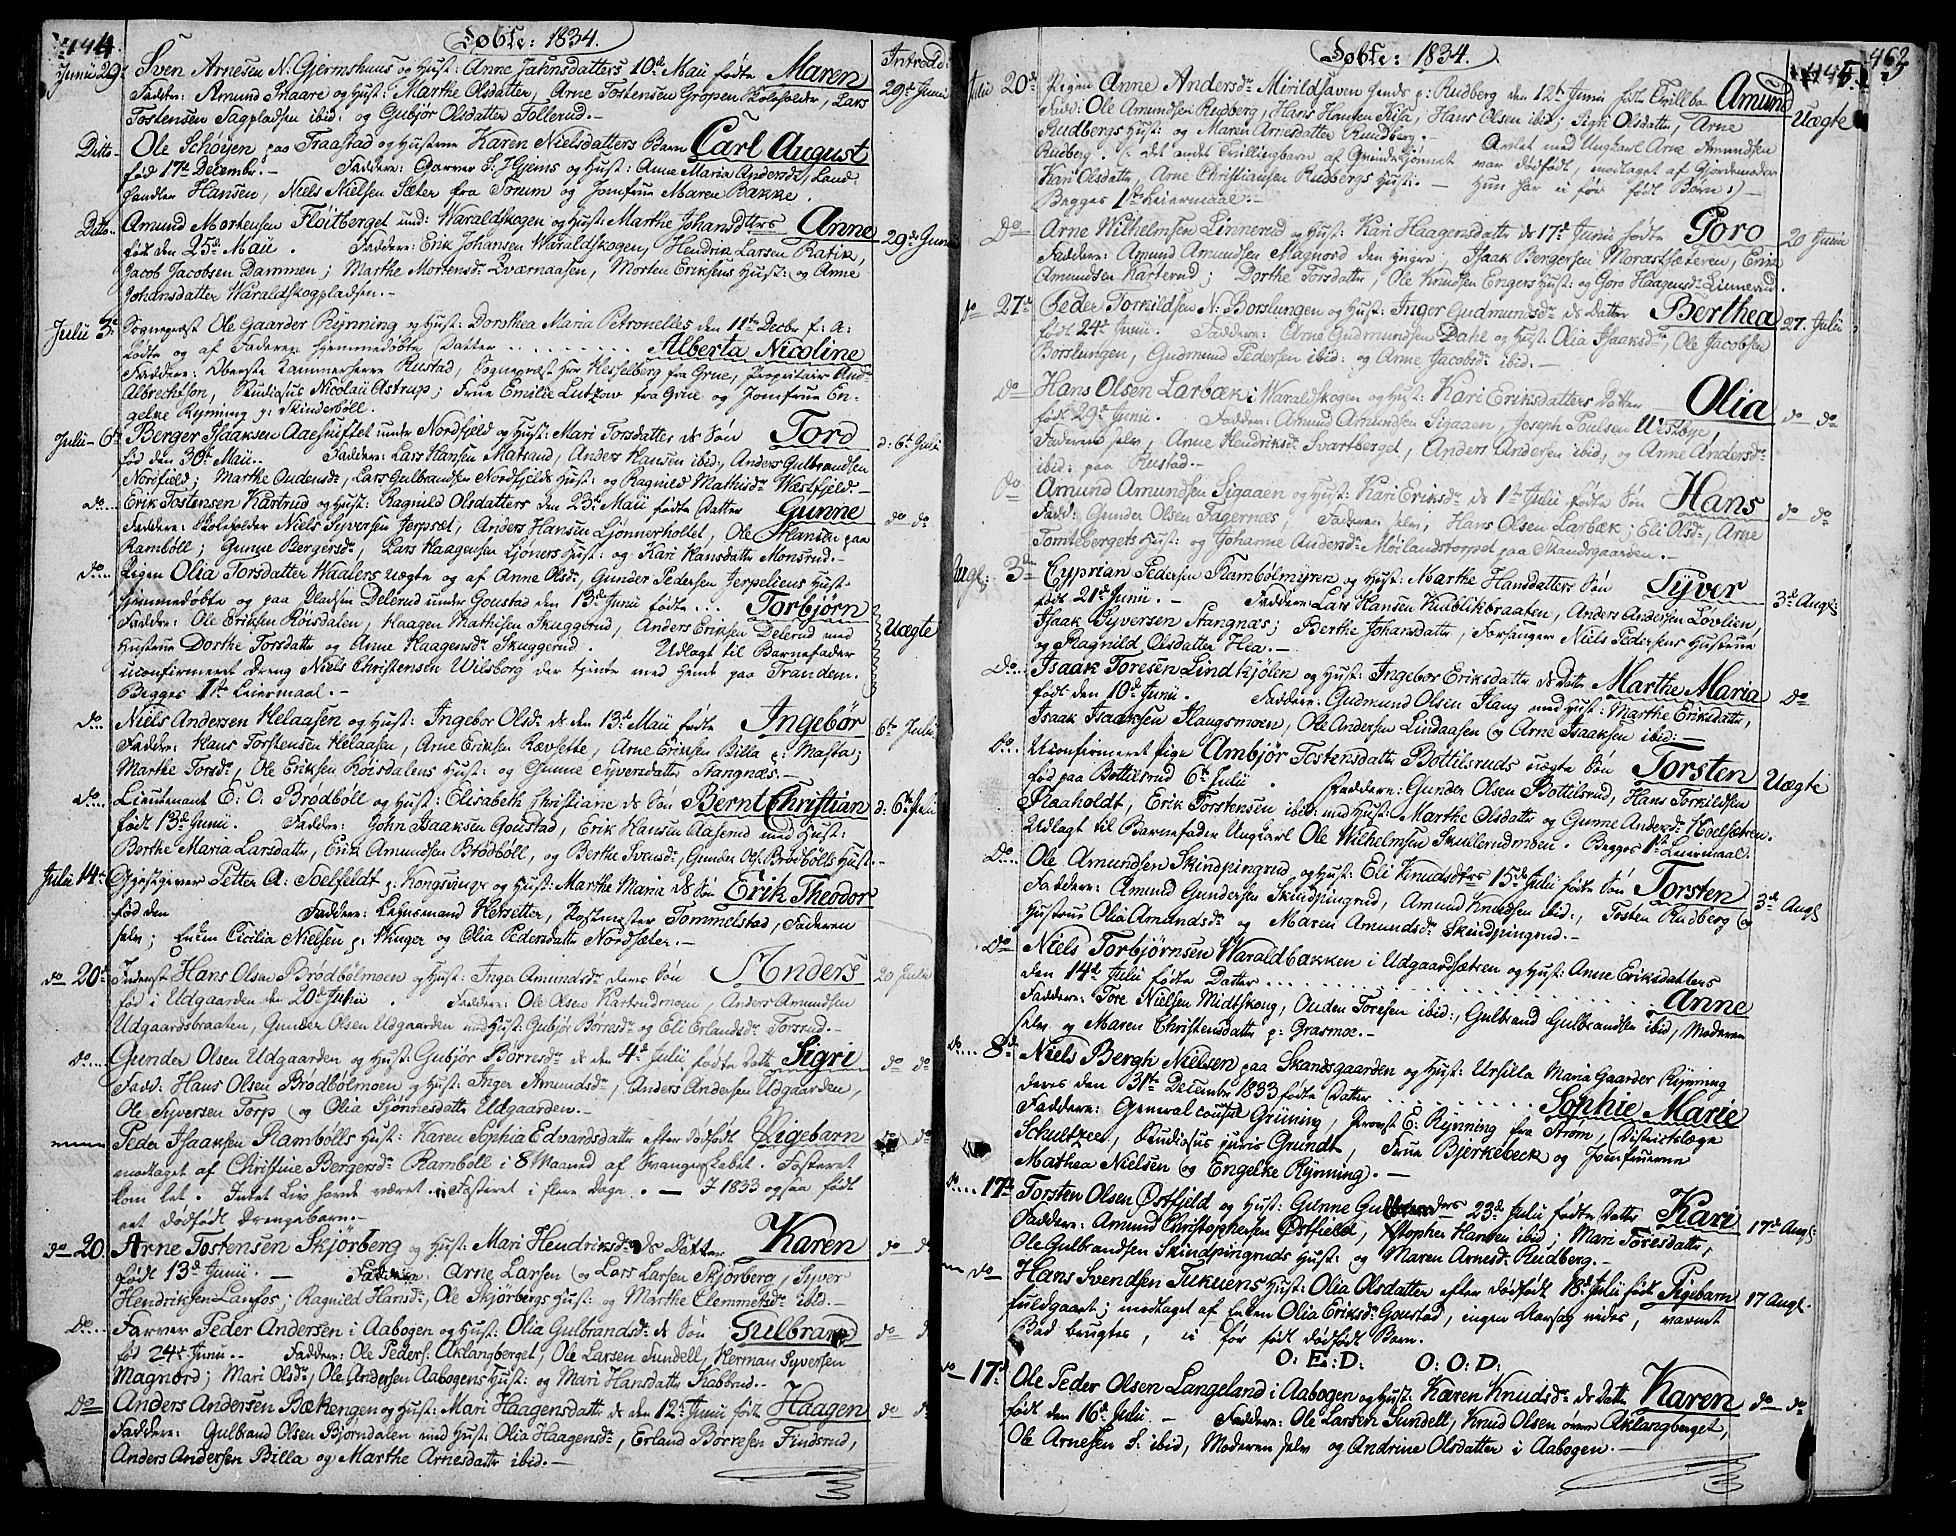 444.
Døbte: 1834.
Introd:
Junii 29de Sven Arnesen N: Gjermshuus og Hust: Anne Jahnsdatters 10de Maii fødte Maren 29de Junii
Faddere: Amund Snaare og Hust: Marthe Olsdatter, Arne Tostensen Gropen Skoleholder, Lars
Tostensen Sagpladsen ibid: og Gubjør Olsdatter Tollerud.-
Ditto- Ole Schøyen paa Fraastad og Hustrue Karen Nielsdatters Barn Carl August
fød 17de Decembr:- Faddere: Garver S: J Gjems og Hust: Anne Maria Andersdr, Land-
handler Hansen, Niels Nielsen Sæter fra Sorum og Jomfrue Maren Bakke.
Ditto- Amund Mortensen Fløitberget und: Waraldskogen og Hust: Marthe Johansdtrs Anne 29de Junii
født den 25de Maii. Faddere: Erik Johansen Waraldskogen, Hendrik Larsen Ratik,
Jacob Jacobsen Dammen; Marthe Mortensdr Qværnaasen, Morten Eriksens Hust: og Anne
Johansdatter Waraldskogpladsen.-
Julii 3de Sognepræst Ole Gaarder Rynning og Hust: Dorothea Maria Petronelles den 11te Decbr f: a:
fødte og af Faderen hjemmedøbte Datter . . . . . . . . Alberta Nicoline
Faddere: Oberste Kammerherre Rustad, Sognepræst Hr Hesselberg fra Grue, Proprietair And-
Albrechtson, Studiosus Nicolai Astrup; Frue Emilie Lutzow fra Grue og Jomfrue En-
gelke Rynning p: Skinderbøll.
Julii- 6te Berger Isaaksen Aaeskiftet under Nordfjeld og Hust: Mari Torsdatters ds Søn Tord d: 6te Julii
fød den 30te Maii. Faddere: Lars Hansen Matrand, Anders Hansen ibid:, Anders Gulbrandsen
Nordfjeld; Marthe Audensdr, Lars Gulbrandsen Nordfjelds Hust: og Ragnild Mathisdr Wæstfjeld.-
do.... Erik Tostensen Kartrud og Hust: Ragnild Olsdatters den 23de Maii fødte Datter Gunne do do
Faddere: Skoleholder Niels Syversen Jerpsæt, Anders Hansen Lønnerholtet, Ole Hansen paa
Rambøll; Gunne Bergersdr, Lars Haagensen Ljøners Hust: og Kari Hansdatter Monsrud.-
do.... Pigen Olia Torsdatter Waalers uægte og af Anne Olsdr, Gunder Pedersen Jerpeliens Hust:
hjemmedøbte og paa Pladsen Delerud under Goustad den 13de Junii fødte . . . Torbjørn Uægte
Faddere: Ole Eriksen Roisdalen, Haagen Mathisen Skuggerud, Anders Eriksen Delerud med
Hustrue Dorthe Torsdatter og Anne Haagensdr Skuggerud. Udlagt til Barnefader
uconfirmeret Dreng Niels Christensen Wilsborg der tjente med hende paa Trandem.
Begges 1ste Leiermaal.-
do... Niels Andersen Helaasen og Hust: Ingebor Olsdr ds den 13de Maii fødte Ingebør 6te Julii
Faddere: Hans Torstensen Helaasen, Arne Eriksen Rævsette, Arne Eriksen Billa p: Masta;
Marthe Torsdr, Ole Eriksen Roisdalens Hust: og Gunne Syversdatter Stangnæs.-
do.... Lieutenant E: O: Brødbøll og Hust: Elisabeth Christiane ds Søn Bernt Christian d: 6te Julii
født 13de Junii. Faddere: John Isaaksen Goustad, Erik Hansen Aaserud med Hust:
Berthe Maria Larsdatter, Erik Amundsen Brødbøll, og Berthe Svensdr, Gunder Ols: Brødbølls Hust.-
Julii 14te Gjæstgiver Petter A: Soelfeldt p: Kongsvinger og Hust: Marthe Maria ds Søn Erik Theodor
fød den Faddere: Lensmand Hersetter, Postmester Tommelstad, Faderen
selv; Enken Cicilia Nielsen p: Skinger og Olia Pedersdatter Nordsæter.-
do 20de Inderst Hans Olsen Brødbølmoen og Hust: Inger Amundsdr deres Søn Anders 20 Julii
fød i Udgaarden den 20de Julii. Faddere: Ole Olsen Kartrudmoen, Anders Amundsen
Udgaardsbraaten, Gunder Olsen Udgaarden med Hust: Gubjør Børresdr og Eli Erlandsdr Torsrud.-
do.... Gunder Olsen Udgaarden og Hust: Gubjør Børresdr ds den 4de Julii fødte Datter Sigri do do
Fadd: Hans Olsen Brødbølmoen og Hust: Inger Amundsdr, Anders Andersen Udgaarden,
Ole Syversen Torp og Olia Sjønnesdatter Udgaarden.-
Peder Isaaksen Rambølls Hust: Karen Sophia Edvardsdatter efter dødfødt Pigebarn do do
modtaget af Christine Bergersdr Rambøll i 8 Maaned af Svangerskabet. Fosteret
kom let. Intet Liv havde været i Fosteret i flere Dage. - I 1833 ogsaa født
eet dødfødt Drengebarn.-
do 20. Arne Tostensen Skjørberg og Hust: Mari Hendriksdr ds Datter Karen do d
født 13de Junii. - Faddere: Arne Larsen og Lars Larsen Skjørberg, Syver
Hendriksen Lanfos; Ragnild Hansdr, Ole Skjørbergs Hust: og Marthe Clemmetsdr ibid.-
Do.... Farver Peder Andersen i Aabogen og Hust: Olia Gulbrandsdr ds Søn Gulbrand do d
fød 24de Junii.- Faddere: Ole Peders: Aklangberget, Ole Larsen Sundell, Herman Syversen
Magnord; Mari Olsdr, Ole Andersen Aabogens Hust: og Mari Hansdatter Skabbrud.-
Do Anders Andersen Bækengen og Hust: Mari Haagensdatter ds den 12te Junii født Haagen do d
Faddere: Gulbrand Olsen Bjorndalen med Hust: Olia Haagensdr, Erland Børresen Findsrud,
Anders Andersen Billa og Marthe Arnesdatter ibid.-
Døbte: 1834.
445.
463
Julii 20de Pigen Anne Andersdr Mirildhaven hends p: Rudberg den 12te Junii fød: Tvillbn Amund Uægte
Fadd: Ole Amundsen Rudberg, Hans Hansen Risa, Hans Olsen ibid; Sigri Olsdatter, Arne
Rudbergs Hust: og Maren Arnesdatter Rundberg.- Avlet med Ungkarl Arne Amundsen
Rudberg. (: det andet Tvillingbarn af Qvindekjønnet var dødfødt, modtaget af Gjordemoder
Kari Olsdatter, Arne Christiansen Rudbergs Hust:.- Hun har ei før født Børn :)-
Begges 1ste Leiermaal:-
Do Arne Wilhelmsen Linnerud og Hust: Kari Haagensdatter ds 17de Junii fødte Goro 20 Junii
Faddere: Amund Amundsen Magnord den yngre, Isaak Bergersen Morastsæteren, Erik
Amundsen Karterud; Dorthe Torsdatter, Ole Knudsen Engers Hust: og Goro Haagensdr Linnerud.
do 27de Peder Torkildsen N: Borslungen og Hust: Inger Gudmundsdr ds Datter Berthea 27. Julii
født 24de Junii. Faddere: Arne Gudmundsen Dahl og Hust: Olia Isaaksdr, Ole Jacobsen
Borslungen, Gudmund Pedersen ibid: og Anne Jacobsdr ibid:-
do Hans Olsen Larbæk i Waraldskogen og Hust: Kari Eriksdatters Datter Olia do do
født 29de Junii. Faddere: Amund Amundsen Sigaaen, Joseph Poulsen Westbye,
Faderen selv, Arne Hendriksdr Svartberget, Anders Andersen ibid, og Anne Andersdr
ibid: paa Rustad.-
do Amund Amundsen Sigaaen og Hust: Kari Eriksdr ds 1ste Julii fødte Søn Hans do do
Fadd: Gunder Olsen Fagernæs, Faderen selv, Hans Olsen Larbæk; Eli Olsdr, Arne
Tomtebergets Hust: og Johanne Andersdr Møilandstorpet paa Skandsgaarden.-
Augt: 3de Cyprian Pedersen Rambølmyren og Hust: Marthe Hansdatters Søn Syver 3de Augt:
født 21de Junii.- Faddere: Lars Hansen Knublikbraaten, Anders Andersen Løvlien,
Isaak Syversen Stangnæs; Berthe Johansdatter, Forsanger Niels Pedersens Hustrue
og Ragnild Olsdatter Hea.-
Do... Isaak Toresen Lindkjølen og Hust: Ingebor Eriksdatter ds Dattr Marthe Maria Do
født den 10de Junii. Faddere: Gudmund Olsen Haug med Hust: Marthe Eriksdatter,
Isaak Isaaksen Haugsmoen, Ole Andersen Lindaasen og Arne Isaaksen ibid:-
Do... Uconfirmeret Pige Ambjør Tostensdatter Bottilsruds uægte Søn Torsten Uægte
fød paa Bottilsrud 6te Julii. Faddere: Gunder Olsen Bottilsrud, Hans Torkildsen
Raaholdt, Erik Torstensen ibid: med Hust: Marthe Olsdatter og Gunne Andersdr Hoelsætren.
Udlagt til Barnefader Ungkarl Ole Wilhelmsen Skullerudmoen. Begges 1ste Leiermaal.
Do... Ole Amundsen Skindpingrud og Hust: Eli Knudsdtrs 15de Julii fødte Søn Torsten 3de Augt
Faddere: Amund Gundersen Skindpingrud, Amund Knudsen ibid:, Tosten Rudberg og
Hustrue Olia Amundsdr og Maren Amundsdr Skindpingrud.-
Do Niels Torbjørnsen Waraldbakken i Udgaardsætren og Hust: Anne Eriksdatters
den 14de Julii fødte Datter . . . . . . . . . . . . . . . . . . Anne
Faddere: Tore Nielsen Midtskoug, Auden Toresen ibid:, Gulbrand Gulbrandsen ibid, Moderen
selv og Maren Christensdatter p: Grasmoe.-
do.... 8de Niels Bergh Nielsen paa Skandsgaarden og Hust: Ursilla Maria Gaarder Rynning
deres den 31te December 1833 fødte Datter . . . . . . . . . . Sophie Marie
Faddere: Generalconsul Grüning, Provst E: Rynning fra Strøm, Districtslæge
Schultzee, Studiosus juris Grundt, Frue Bjerkebeck og Jomfruerne
Mathea Nielsen og Engelke Rynning).-
do.... 17de Torsten Olsen Østfjeld og Hust: Gunne Gulbrands 23de Julii fødte Datter Kari 17de Augt:
Faddere: Amund Christophersen Østfjeld, Xstopher Hansen ibid; Mari Toresdatter,
Ole Gulbrandsen Skindpingruds Hust: og Maren Arnesdr Rudberg.-
do Hans Svendsen Tukuens Hust: Olia Olsdatter efter dødfødt 18de Julii født Pigebarn 17 Augt.
fuldgaaet; modtaget af Enken Olia Eriksdr Goustad, ingen Aarsag vides, varmt
Bad brugtes, ei før født dødfødt Barn.
O: E: D: O: O: D:
do- 17de Ole Peder Olsen Langeland i Aabogen og Hust: Karen Knudsdr ds Datter Karen do- do
født den 16de Julii.- Faddere: Ole Larsen Sundell, Knud Olsen øvre Aklangberget,
Ole Arnesen S: ibid, Moderen selv og Andrine Olsdatter i Aabogen.-